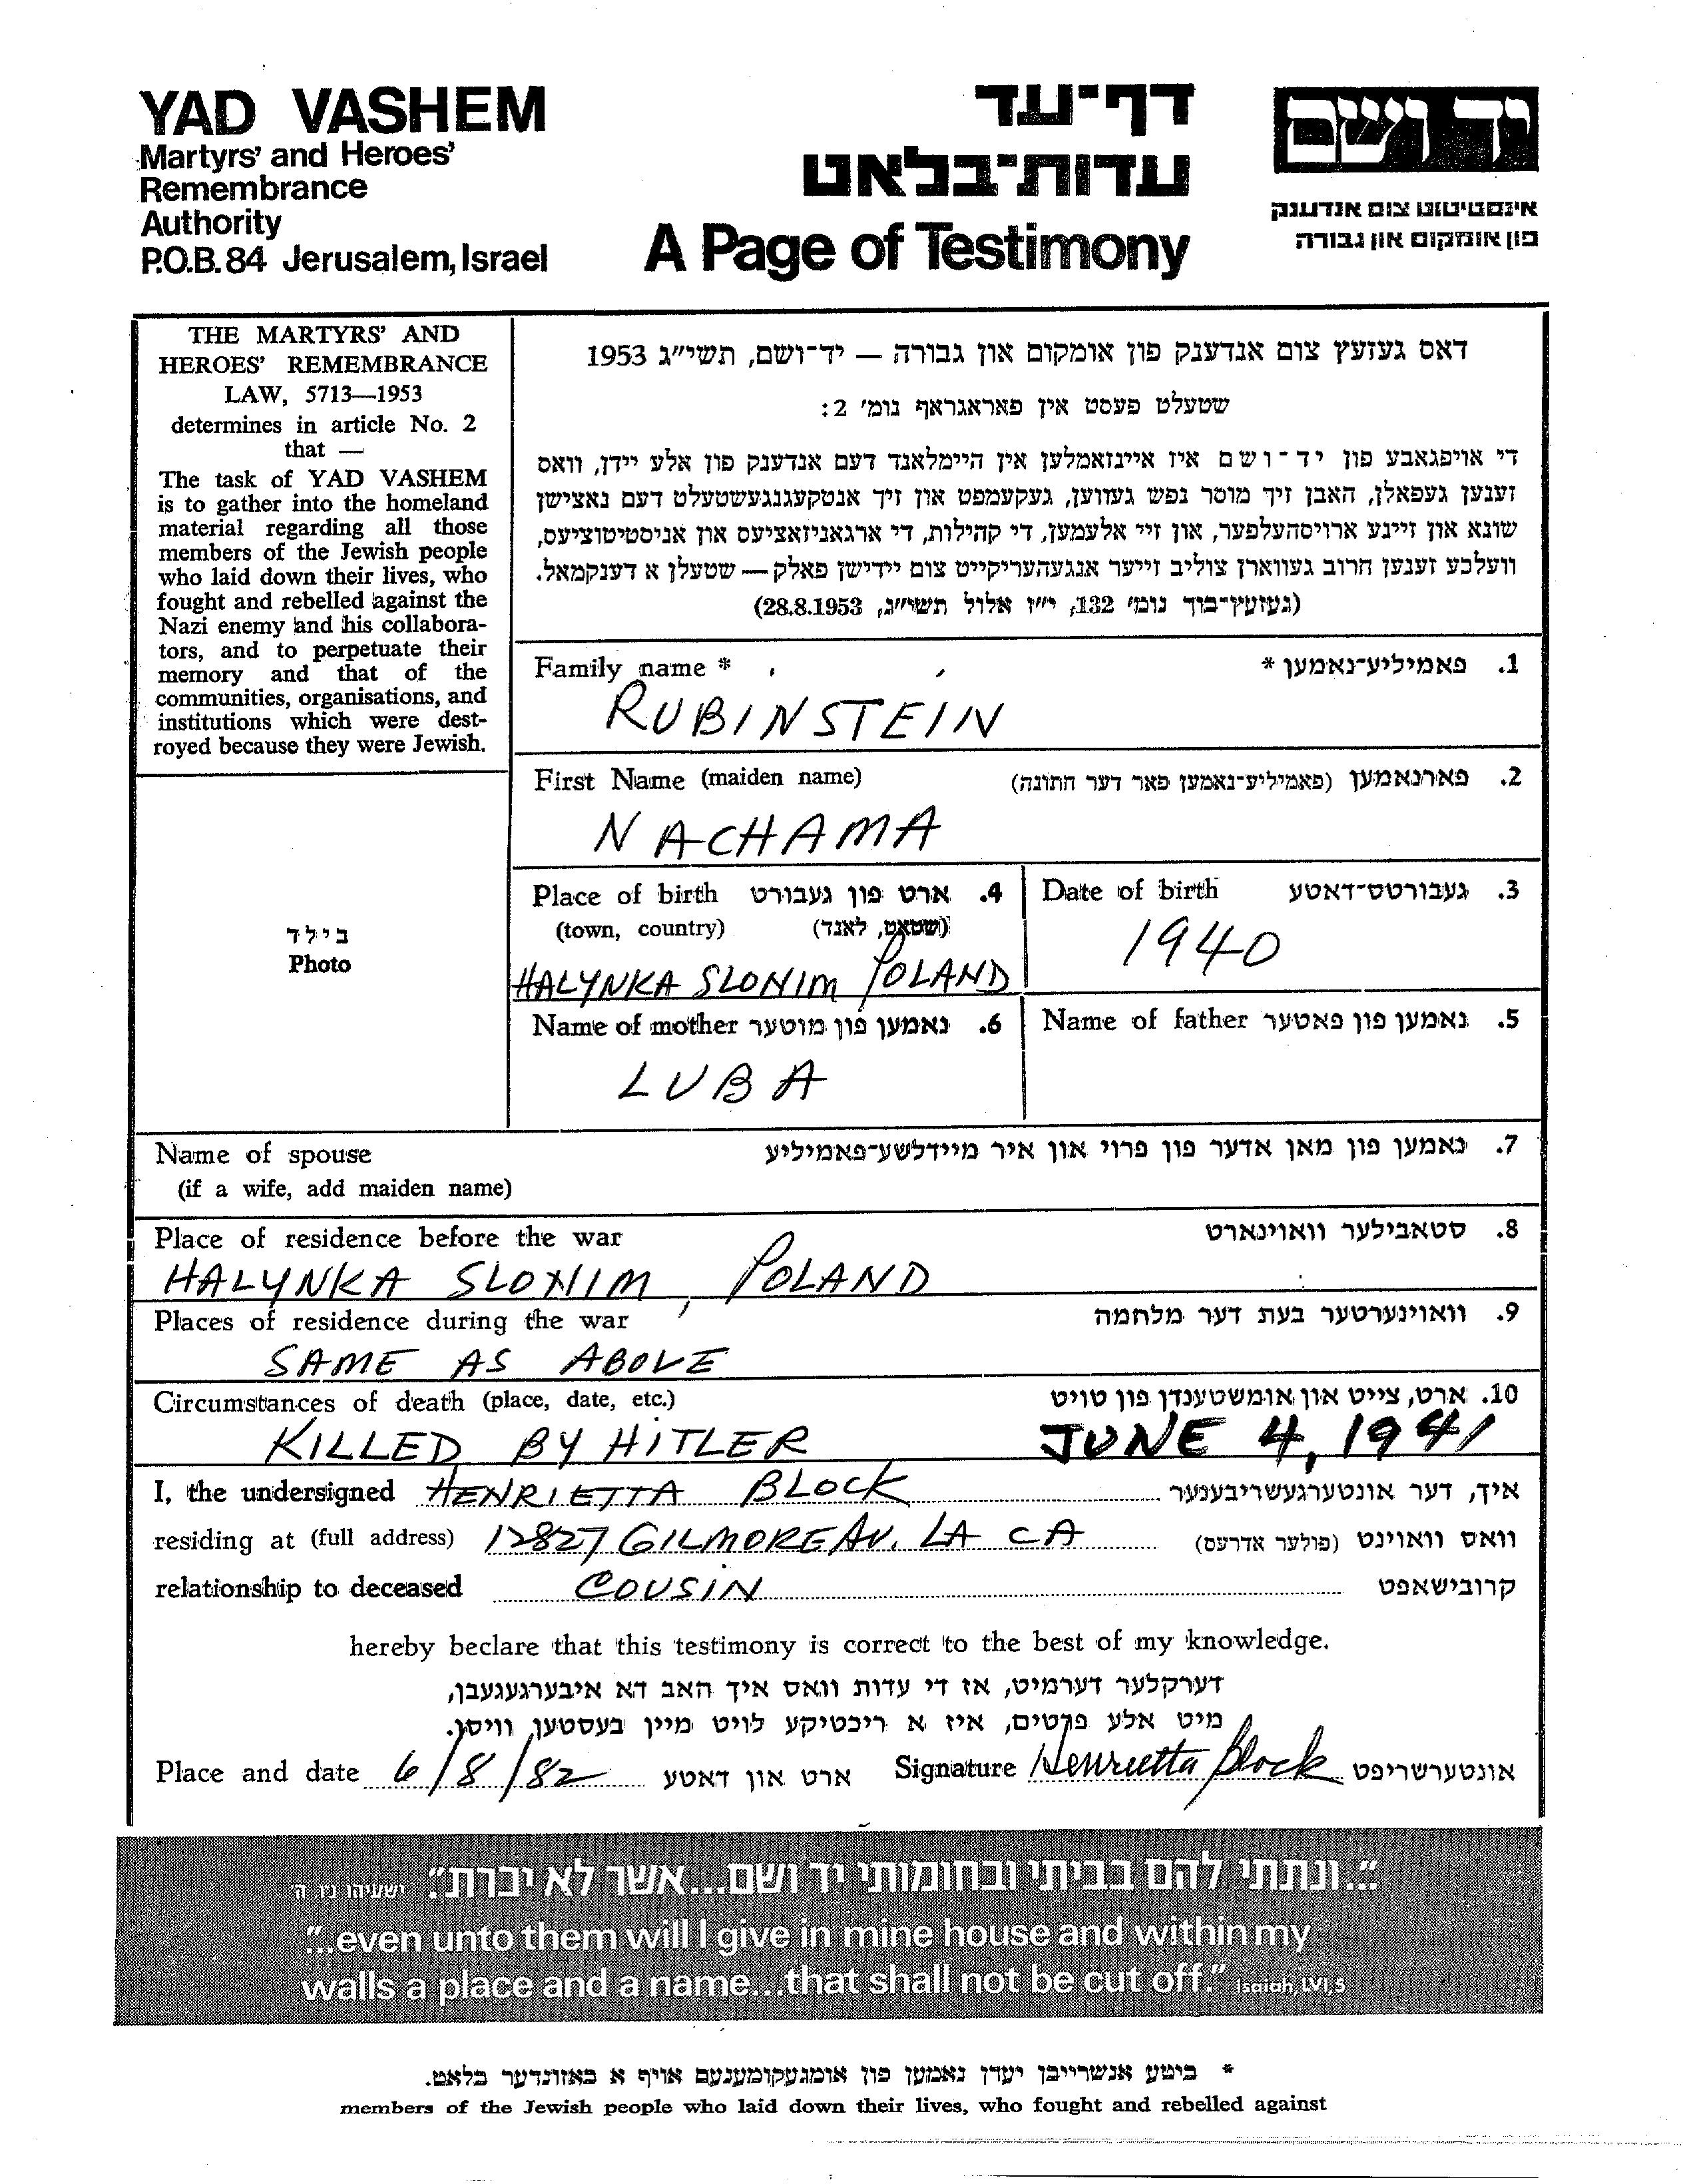 YAD VASHEM
Martyrs' and Heroes'
Remembrance
Authority
P.O.B. 84 Jerusalem, Israel
דף-עד
עדות-בלאט
A Page of Testimony
יד ושם
אינסטיטוט צום אנדענק
פון אומקום און גבורה
THE MARTYRS' AND
HEROES' REMEMBRANCE
LAW, 5713—1953
determines in article No. 2
that —
The task of YAD VASHEM
is to gather into the homeland
material regarding all those
members of the Jewish people
who laid down their lives, who
fought and rebelled against the
Nazi enemy and his collabora-
tors, and to perpetuate their
memory and that of the
communities, organisations, and
institutions which were dest-
royed because they were Jewish.
דאס געזעץ צום אנדענק פון אומקום און גבורה — יד-ושם, תשי"ג 1953
שטעלט פעסט אין פאראגראף נומ' 2:
די אויפגאבע פון יד-ושם איז איינזאמלען אין היימלאנד דעם אנדענק פון אלע יידן, וואס
זענען געפאלן, האבן זיך מוסר נפש געווען, געקעמפט און זיך אנטקעגנגעשטעלט דעם נאצישן
שונא און זיינע ארויסהעלפער, און זיי אלעמען, די קהילות, די ארגאניזאציעס און אניסטיטוציעס,
וועלכע זענען חרוב געווארן צוליב זייער אנגעהעריקייט צום יידישן פאלק — שטעלן א דענקמאל.
(געזעץ-בוך נומ' 132, י"ז אלול תשי"ג, 28.8.1953)
Family name * פאמיליע-נאמען * .1
RUBINSTEIN
First Name (maiden name) פארנאמען (פאמיליע-נאמען פאר דער חתונה) .2
NACHAMA
Place of birth ארט פון געבורט .4
(town, country) (שטאט, לאנד)
HALYNKA SLONIM POLAND
Date of birth געבורטס-דאטע .3
1940
Name of mother נאמען פון מוטער .6
LUBA
Name of father נאמען פון פאטער .5
בילד
Photo
Name of spouse נאמען פון מאן אדער פון פרוי און איר מיידלשע-פאמיליע .7
(if a wife, add maiden name)
Place of residence before the war סטאבילער וואוינארט .8
HALYNKA SLONIM, POLAND
Places of residence during the war וואוינערטער בעת דער מלחמה .9
SAME AS ABOVE
Circumstances of death (place, date, etc.) ארט, צייט און אומשטענדן פון טויט .10
KILLED BY HITLER JUNE 4, 1941
I, the undersigned HENRIETTA BLOCK איך, דער אונטערגעשריבענער
residing at (full address) 12827 GILMORE AV. LA CA וואס וואוינט (פולער אדרעס)
relationship to deceased COUSIN קרובישאפט
hereby beclare that this testimony is correct to the best of my knowledge.
דערקלער דערמיט, אז די עדות וואס איך האב דא איבערגעגעבן,
מיט אלע פרטים, איז א ריכטיקע לויט מיין בעסטען וויסן.
Place and date 6/8/82 ארט און דאטע Signature Henrietta Block אונטערשריפט
"...ונתתי להם בביתי ובחומותי יד ושם...אשר לא יכרת". ישעיהו נו ה'
"...even unto them will I give in mine house and within my
walls a place and a name...that shall not be cut off." Isaiah, LVI, 5
* ביטע אנשרייבן יעדן נאמען פון אומגעקומענעם אויף א באזונדער בלאט.
members of the Jewish people who laid down their lives, who fought and rebelled against